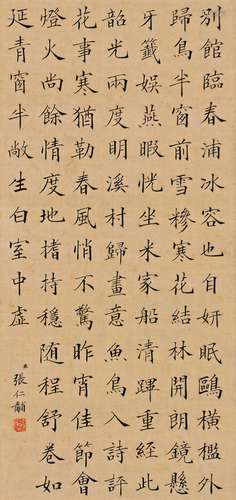 別館臨春浦冰容也自妍眠鷗橫檻外
歸鳥半窗前雪糝寒花結林開朗鏡懸
牙籤娛燕暇恍坐米家船清蹕重經此
韶光兩度明溪村歸畫意魚鳥入詩評
花事寒猶勒春風悄不驚昨宵佳節會
燈火尚餘情度地揩持穩随程舒卷如
延青窗半敞生白室中虛
張仁黼